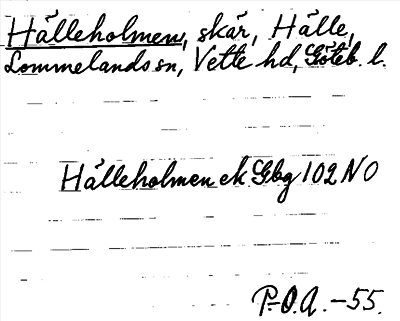 Hälleholmen, skär, Hälle,
Lommelands sn, Vette hd, Göteb. l.
Hälleholmen ek Gbg 102 NO
P.-O.A. -55.